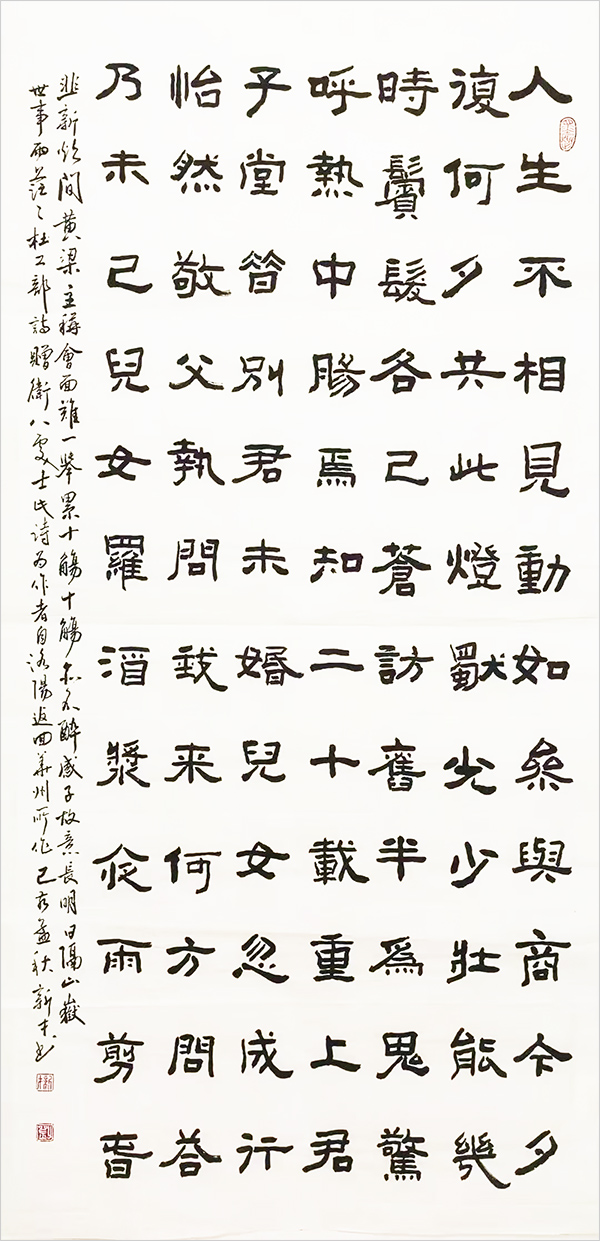 人生不相見動如參與商今夕
復何夕共此燈燭光少壯能幾
時鬢髮各已蒼訪舊半爲鬼驚
呼熱中腸焉知二十載重上君
子堂昔別君未婚兒女忽成行
怡然敬父執問我来何方問荅
乃未已兒女羅酒漿夜雨剪春
韭新炊間黄粱主稱會面難一舉累十觴十觴亦不醉感子故意長明日隔山嶽
世事兩茫々杜工部詩贈衛八處士此詩为作者自洛陽返回華州所作己亥孟秋新木書